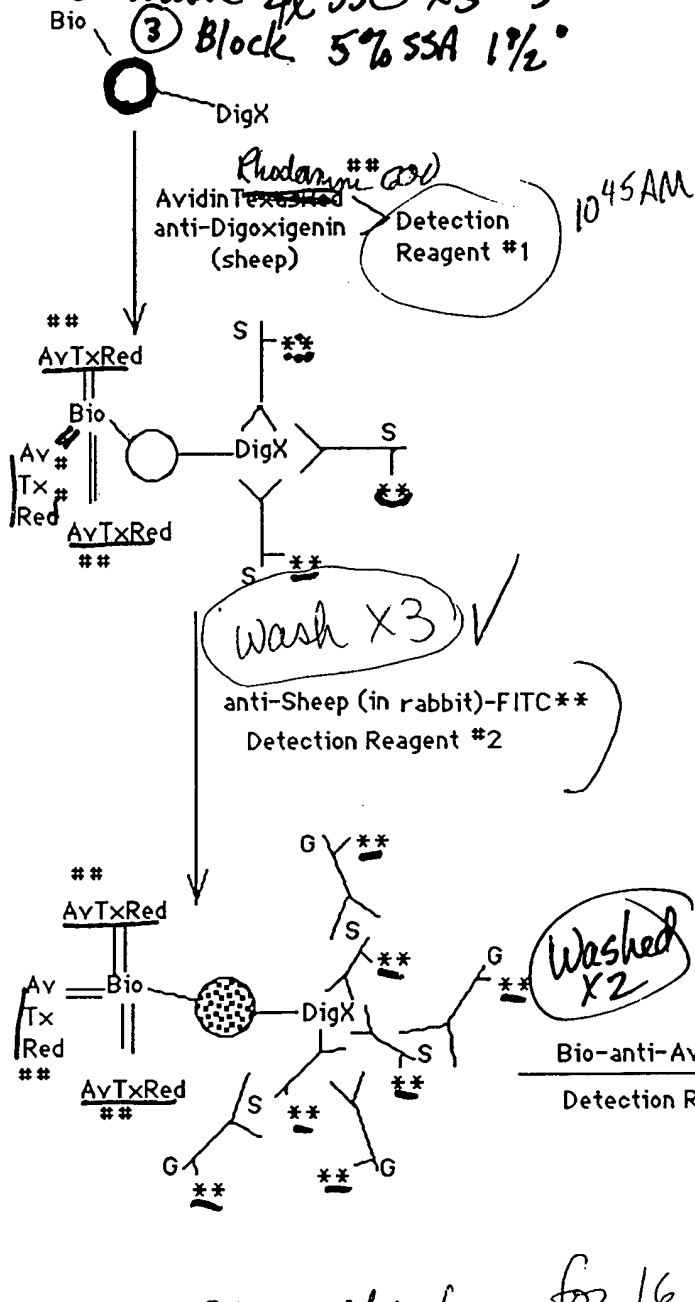 4x SSC x3
Bio
③ Block 5% SSA 1½°
DigX
Rhodamine ##
AvidinTexasRed
anti-Digoxigenin
(sheep)
Detection
Reagent #1
10 45 AM
##
AvTxRed
Bio
Av #
Tx #
Red
AvTxRed
##
S
**
DigX
S
**
S
**
Wash X3 ✓
anti-Sheep (in rabbit)-FITC**
Detection Reagent #2
##
AvTxRed
Av
Tx
Red
##
Bio
AvTxRed
##
DigX
G
**
S
**
G
**
S
**
S
**
G
**
G
**
Washed
X2
Bio-anti-Av
Detection R
for 16